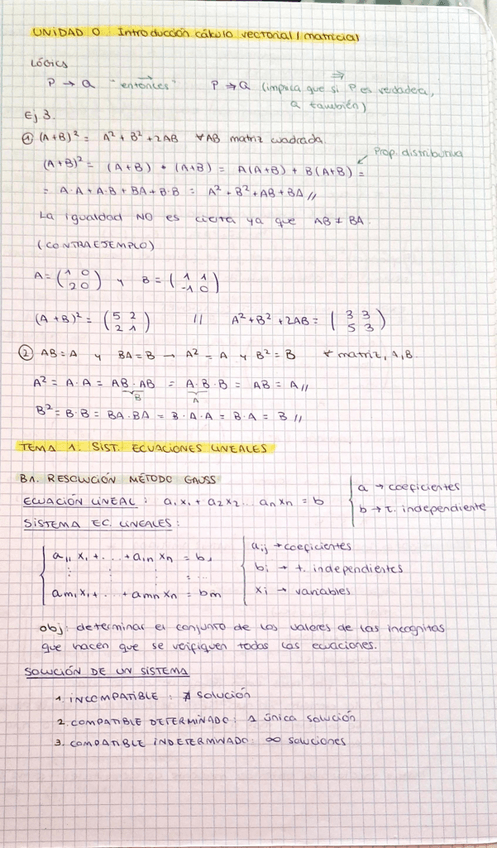 UNIDAD 0. Introducción cálculo vectorial / matricial
LÓGICS
P → Q "entonces" P → Q (implica que si P es verdadera,
⇒
Q también)
Ej 3.
① (A+B)² = A² + B² + 2AB ∀AB matriz cuadrada.
Prop. distributiva
(A+B)² = (A+B) · (A+B) = A(A+B) + B(A+B) =
= A·A + A·B + BA + B·B = A² + B² + AB + BA //
La igualdad NO es cierta ya que AB ≠ BA.
(CONTRAEJEMPLO)
A = (1 0 / 2 0) y B = (1 1 / -1 0)
(A+B)² = (5 2 / 2 1) // A² + B² + 2AB = (3 3 / 5 3)
② AB = A y BA = B → A² = A y B² = B ∀ matriz, A, B.
A² = A·A = AB·AB = A·B·B = AB = A //
B A
B² = B·B = BA·BA = B·A·A = B·A = B //
TEMA 1. SIST. ECUACIONES LINEALES
B1. RESOLUCIÓN MÉTODO GAUSS
ECUACIÓN LINEAL: a₁x₁ + a₂x₂... anxn = b
a → coeficientes
b → t. independiente
SISTEMA EC. LINEALES:
a₁₁ x₁ + ... + a₁n xn = b₁
am₁x₁ + ... + amn xn = bm
aij → coeficientes
bi → t. independientes
xi → variables
obj: determinar el conjunto de los valores de las incognitas
que hacen que se verifiquen todas las ecuaciones.
SOLUCIÓN DE UN SISTEMA
1. INCOMPATIBLE: ∄ solución
2. COMPATIBLE DETERMINADO: 1 única solución
3. COMPATIBLE INDETERMINADO: ∞ soluciones